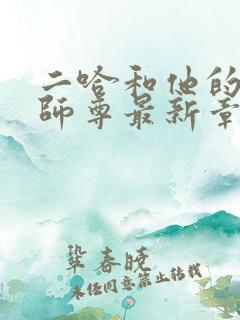 二哈和他的
師尊最新章
鞏春曉
未经同意禁止转载